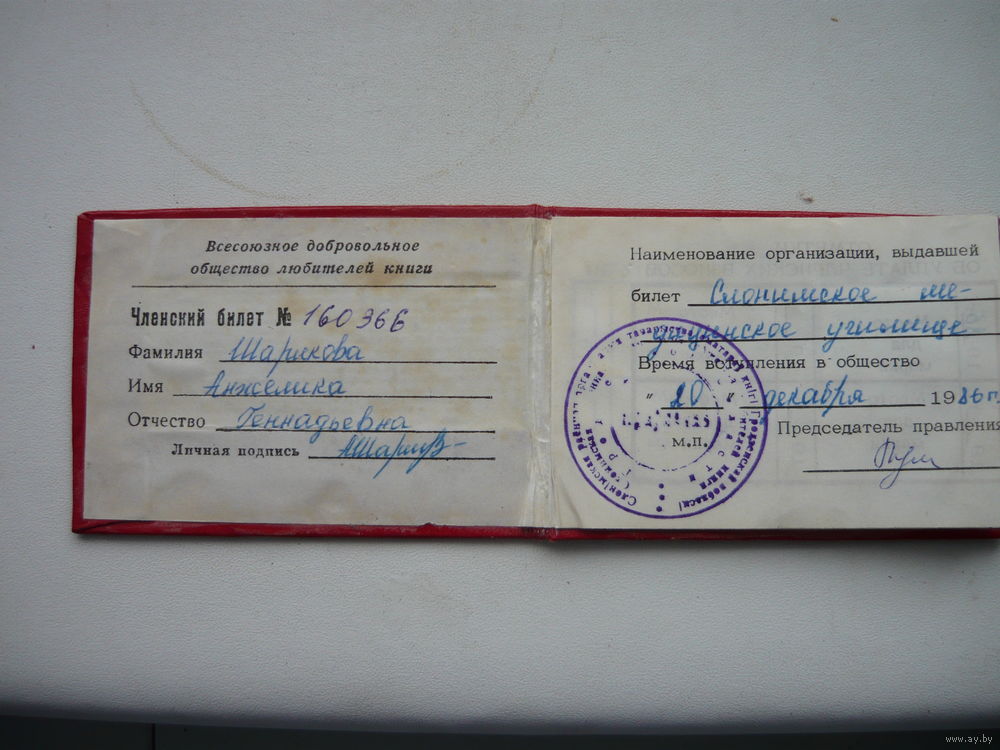 Всесоюзное добровольное
общество любителей книги
Членский билет № 160366
Фамилия Шарикова
Имя Анжелика
Отчество Геннадьевна
Личная подпись
Наименование организации, выдавшей
билет Слонимское ме-
дицинское училище
Время вступления в общество
" 20 " декабря 1986 г.
м.п.
Председатель правления
www.ay.by